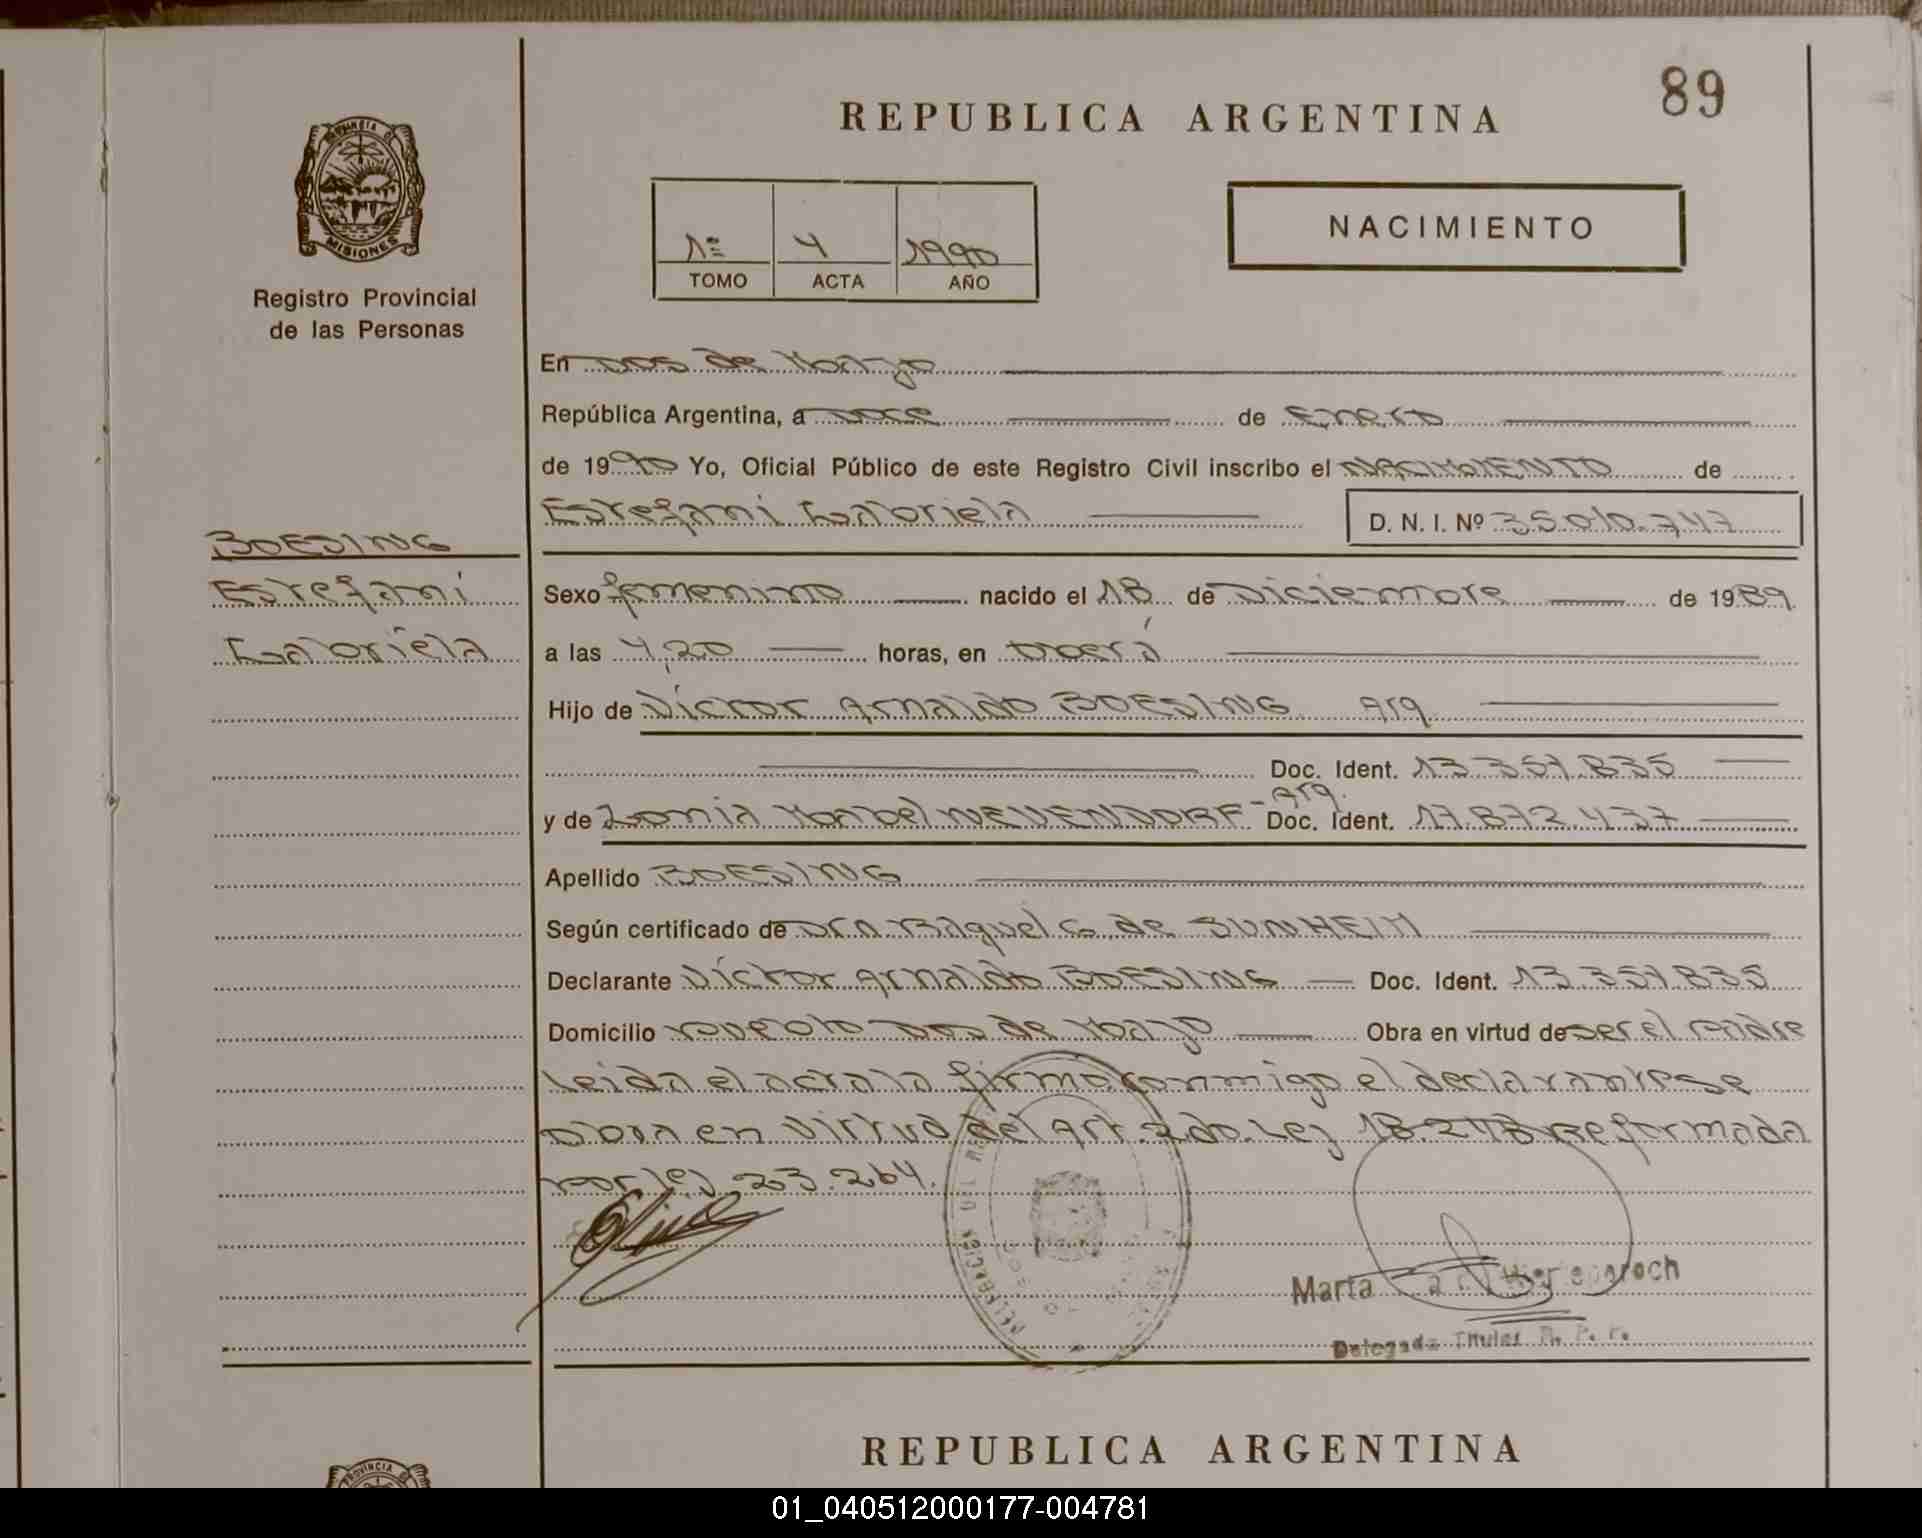 89
REPUBLICA ARGENTINA
PROVINCIA DE
MISIONES
Registro Provincial
de las Personas
1º 4 1990
TOMO ACTA AÑO
NACIMIENTO
En Dos de Mayo
República Argentina, a Doce de Enero
de 1990 Yo, Oficial Público de este Registro Civil inscribo el NACIMIENTO de
Estefani Gabriela D. N. I. Nº 35.010.747
BOESING
Estefani
Gabriela
Sexo femenino nacido el 18 de Diciembre de 1989
a las 4,20 horas, en Oberá
Hijo de Víctor Arnaldo BOESING arg
Doc. Ident. 13.357.835
y de Zonia Mabel NEUENDORF - arg. Doc. Ident. 17.872.437
Apellido BOESING
Según certificado de Dra Raquel G. de SUNHEIM
Declarante Víctor Arnaldo BOESING Doc. Ident. 13.357.835
Domicilio Pueblo Dos de Mayo Obra en virtud de ser el padre
Leida el acta la firma conmigo el declarante se
obra en virtud del art. 2do. Ley 18.248 Reformada
por ley 23.264.
DELEGACION
Marta
Delegada Titular R. P. P.
REPUBLICA ARGENTINA
PROVINCIA DE
01_040512000177-004781